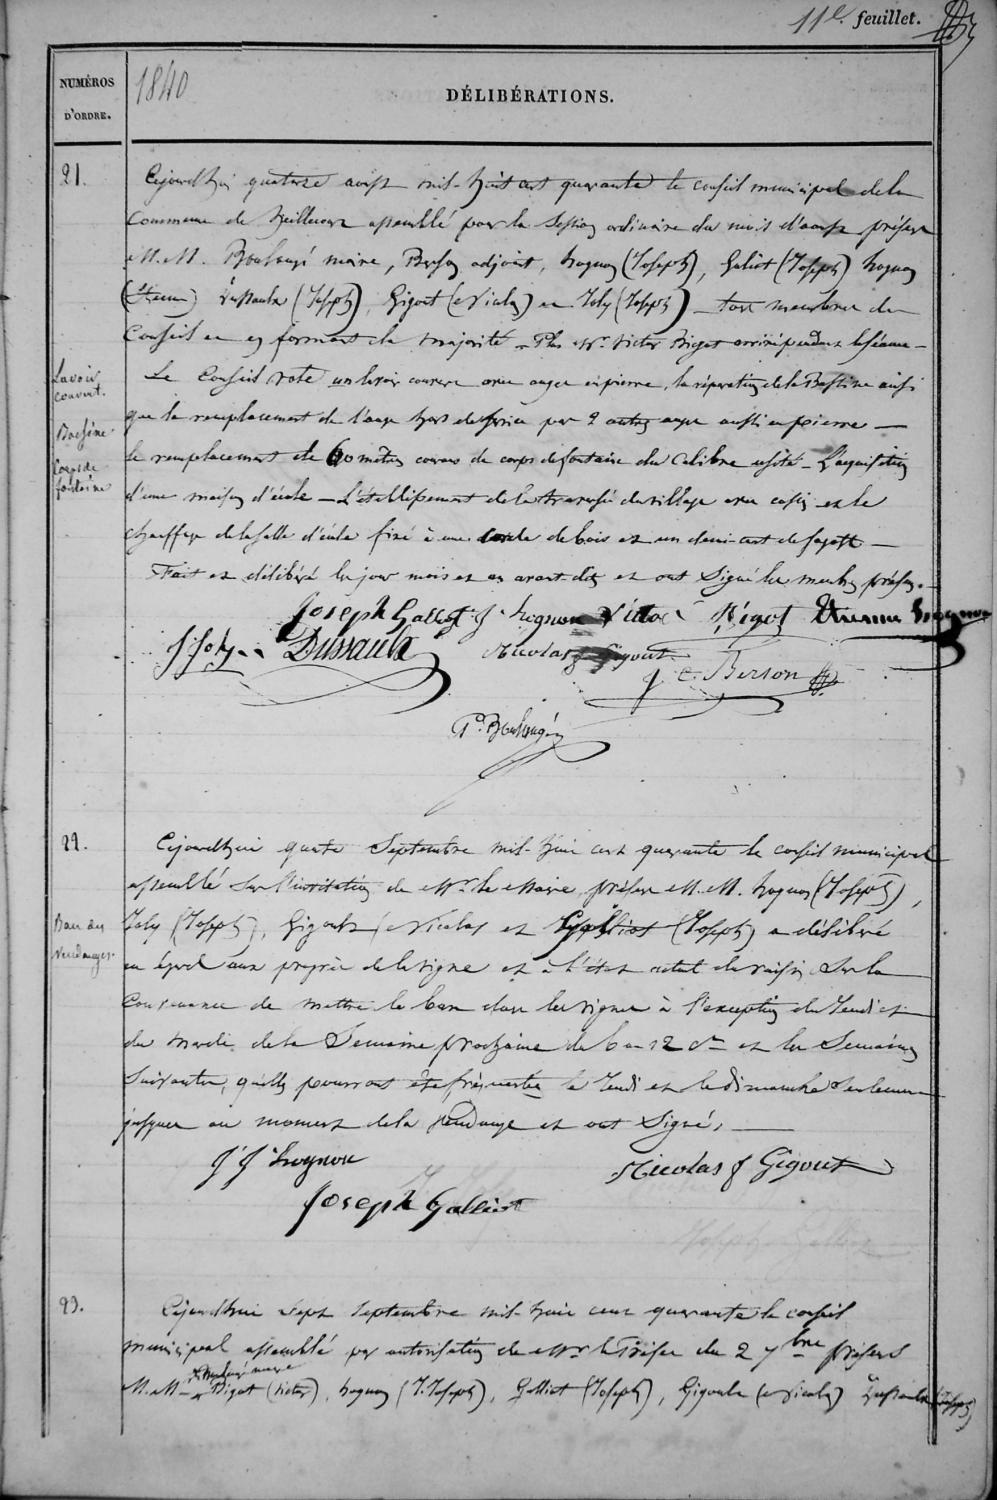 11e. feuillet.
NUMÉROS
D'ORDRE.
1840
DÉLIBÉRATIONS.
21.
Cejourd'hui quatorze aoust mil-huit cent quarante le conseil municipal de la
Commune de assemblé pour la session ordinaire du mois d'aoust présens
M.M. Boulangé maire, Berson adjoint, hognon (Joseph), Galiot (Joseph) hognon
(Etienne) Dussaulx (Joseph), Gigout (Nicolas) et Joly (Joseph) tous membres du
Conseil et en formant la majorité - Plus Mr. Victor Bigot arrivé pendant la séance -
Lavoir
couvert.
Bassine
Corps de
fontaine
Le Conseil vote un lavoir couvert avec auges en pierre, la réparation de la Bassine ainsi
que le remplacement de l'auge hors de service par 2 autres auges aussi en pierre —
le remplacement de 60 mètres courans de corps de fontaine du calibre usité - L'acquisition
d'une maison d'école - L'établissement de la traversée du village avec et le
chauffage de la salle d'école fixé à une corde de bois et un demi-cent de fagots —
Fait et délibéré les jour mois et an avant dits et ont signé les membres présens. -
Joseph Galliot J hognon Victor Bigot Etienne hognon
J Joly Dussaulx Nicolas Gigout
J. C. Berson
P. Boulangé
22.
Ban des
Vendanges.
Cejourd'hui quatre Septembre mil-huit cent quarante le conseil municipal
assemblé sur l'invitation de Mr. le Maire, présens M.M. hognon (Joseph),
Joly (Joseph), Gigout (Nicolas et Galliot (Joseph) a délibéré
eu égard aux progrès de la vigne et à l'état actuel du raisin sur la
Convenance de mettre le ban dans les vignes à l'exception du Jeudi et
du Mardi de la Semaine prochaine du 6 au 12 Ct et les Semaines
Suivantes, qu'elles pourront être fréquentées le Jeudi et le dimanche seulement
jusques au moment de la Vendange et ont Signé, —
J J hognon
Nicolas J Gigout
Joseph Galliot
23.
Cejourd'hui Sept septembre mil-huit cent quarante le conseil
municipal assemblé par autorisation de Mr le Préfet du 2 7bre présens
P. Boulangé maire
M.M. Bigot (Victor), hognon (J. Joseph), Galliot (Joseph), Gigout (Nicolas) Dussaulx (Joseph)